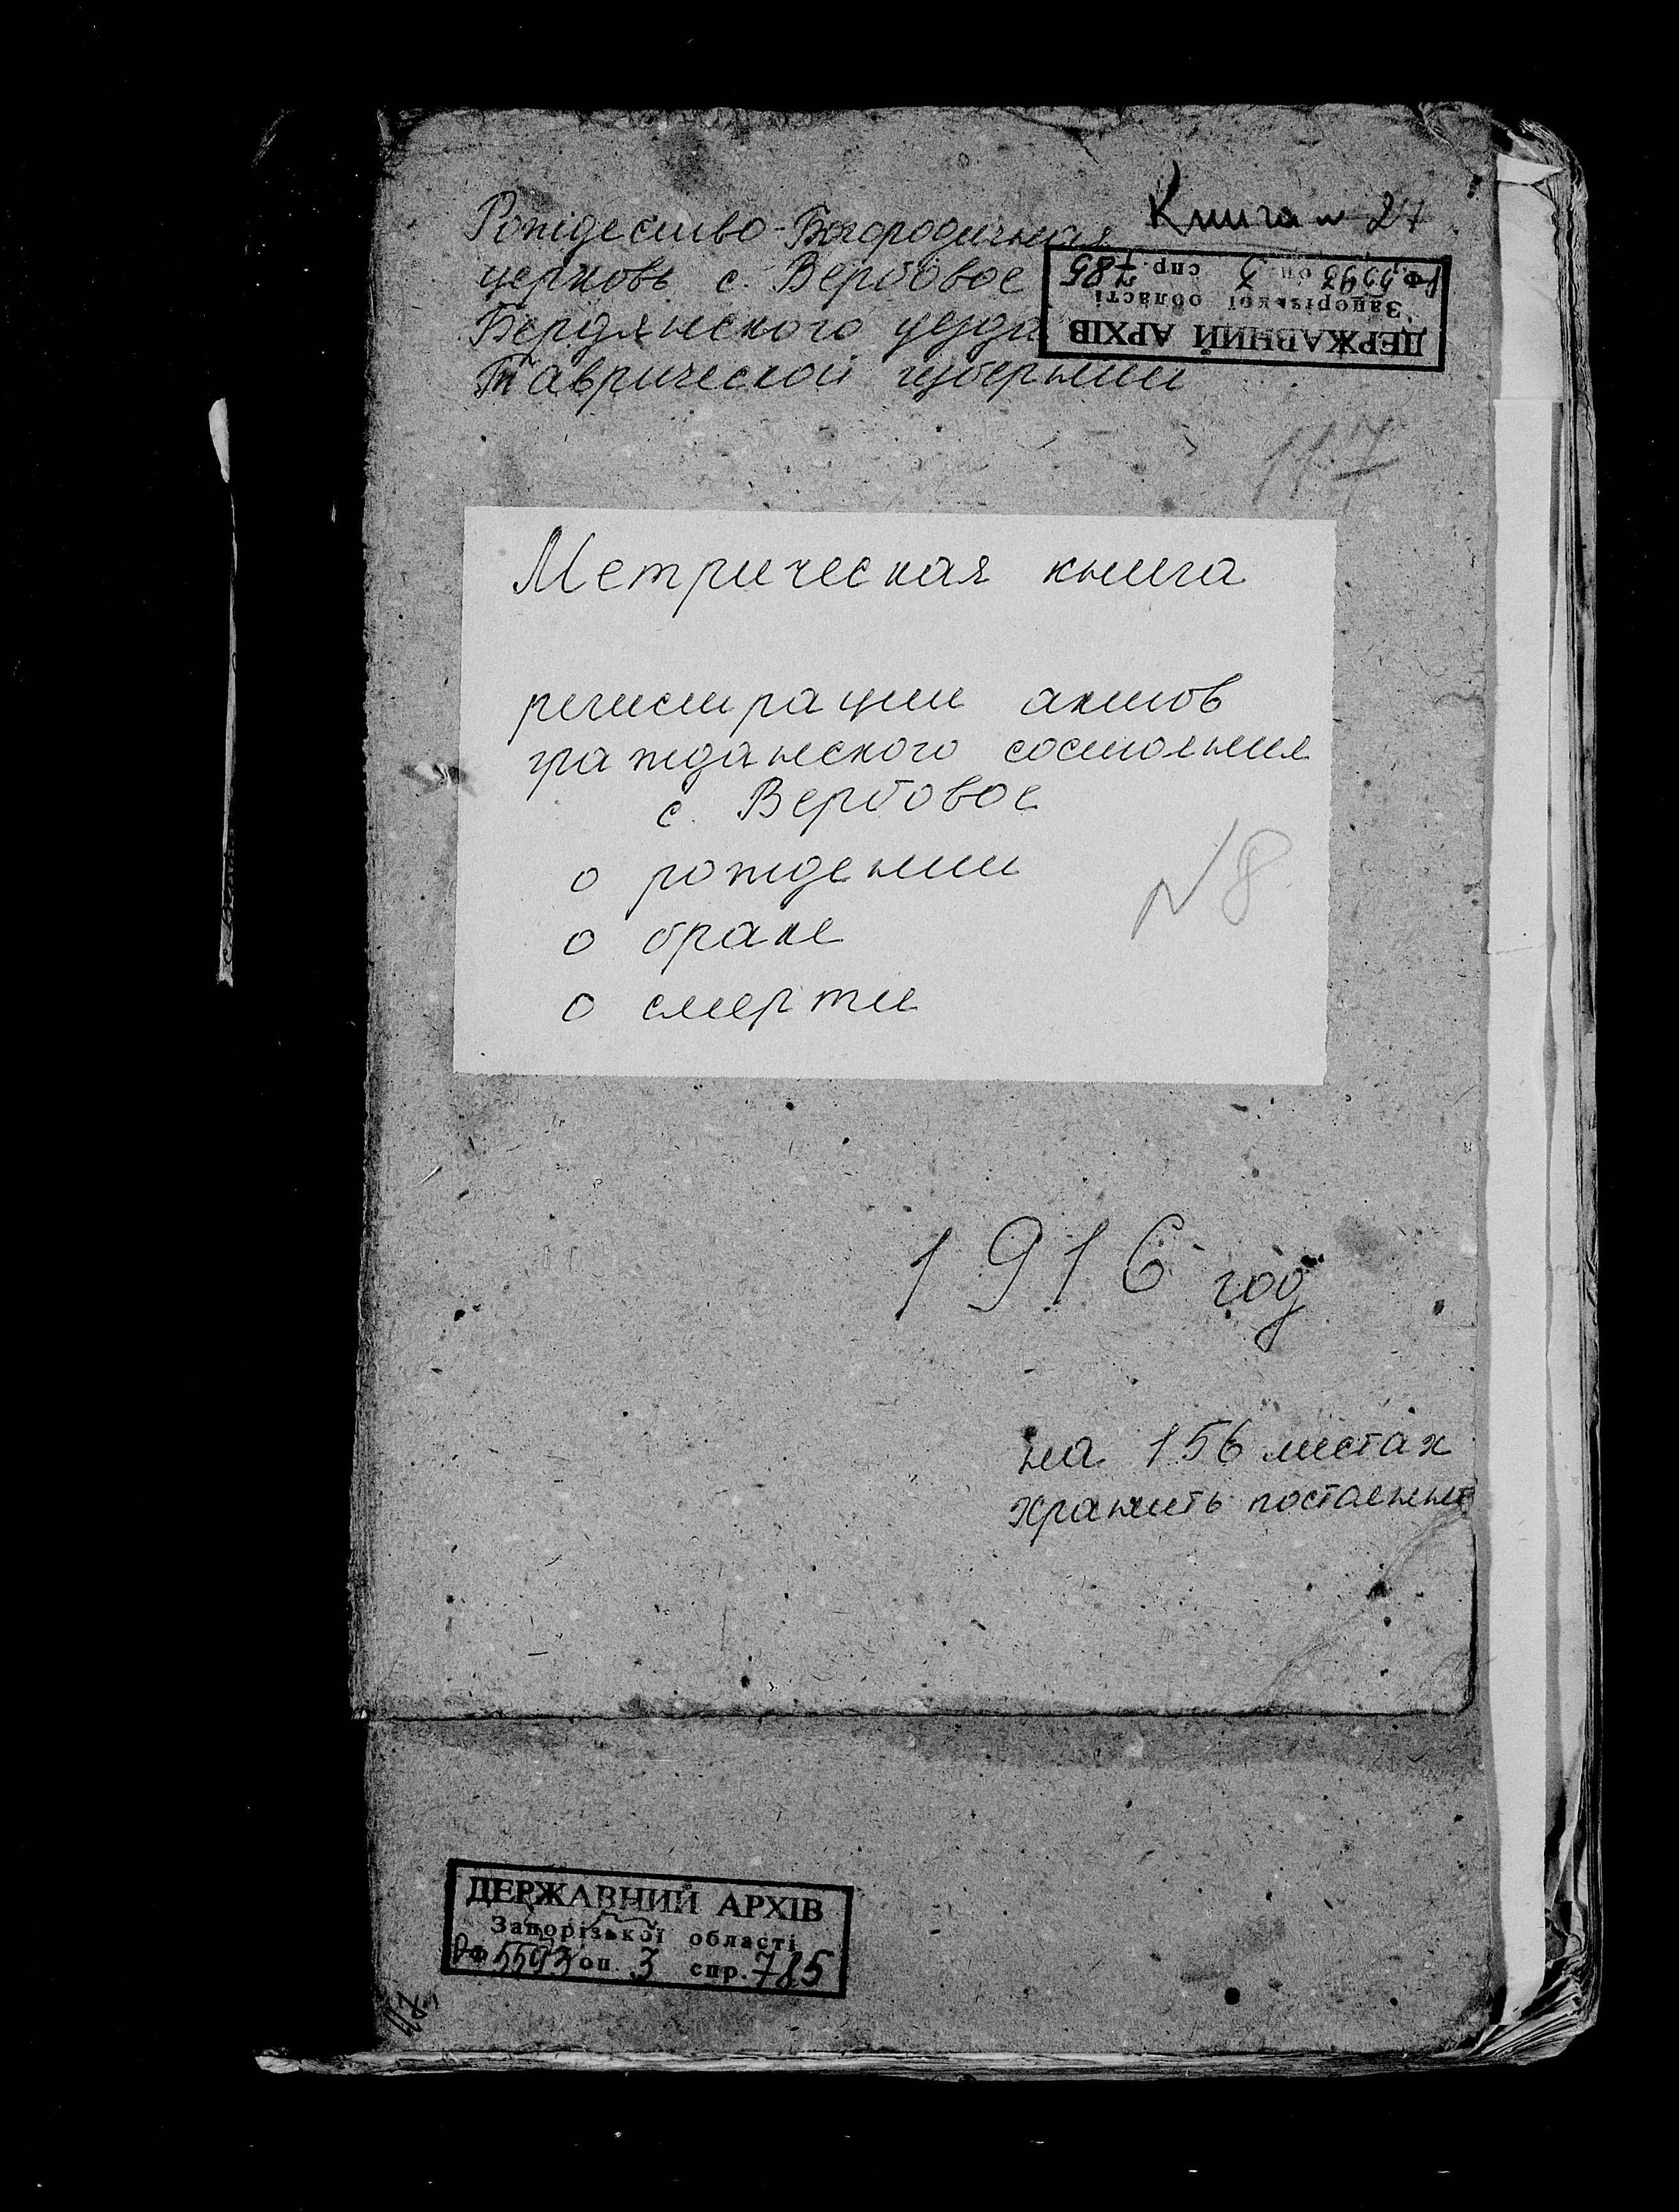 Книга № 27
Рождество-Богородичная
церковь с. Вербовое
Бердянского уезда
Таврической губернии
ДЕРЖАВНИЙ АРХІВ
Запорізької області
РФ 5593 оп. 3 спр. 785
117
Метрическая книга
регистрации актов
гражданского состояния
с. Вербовое
о рождении
№ 8
о браке
о смерти
1916 год
на 156 листах
хранить постоянно
ДЕРЖАВНИЙ АРХІВ
Запорізької області
РФ 5593 оп. 3 спр. 785